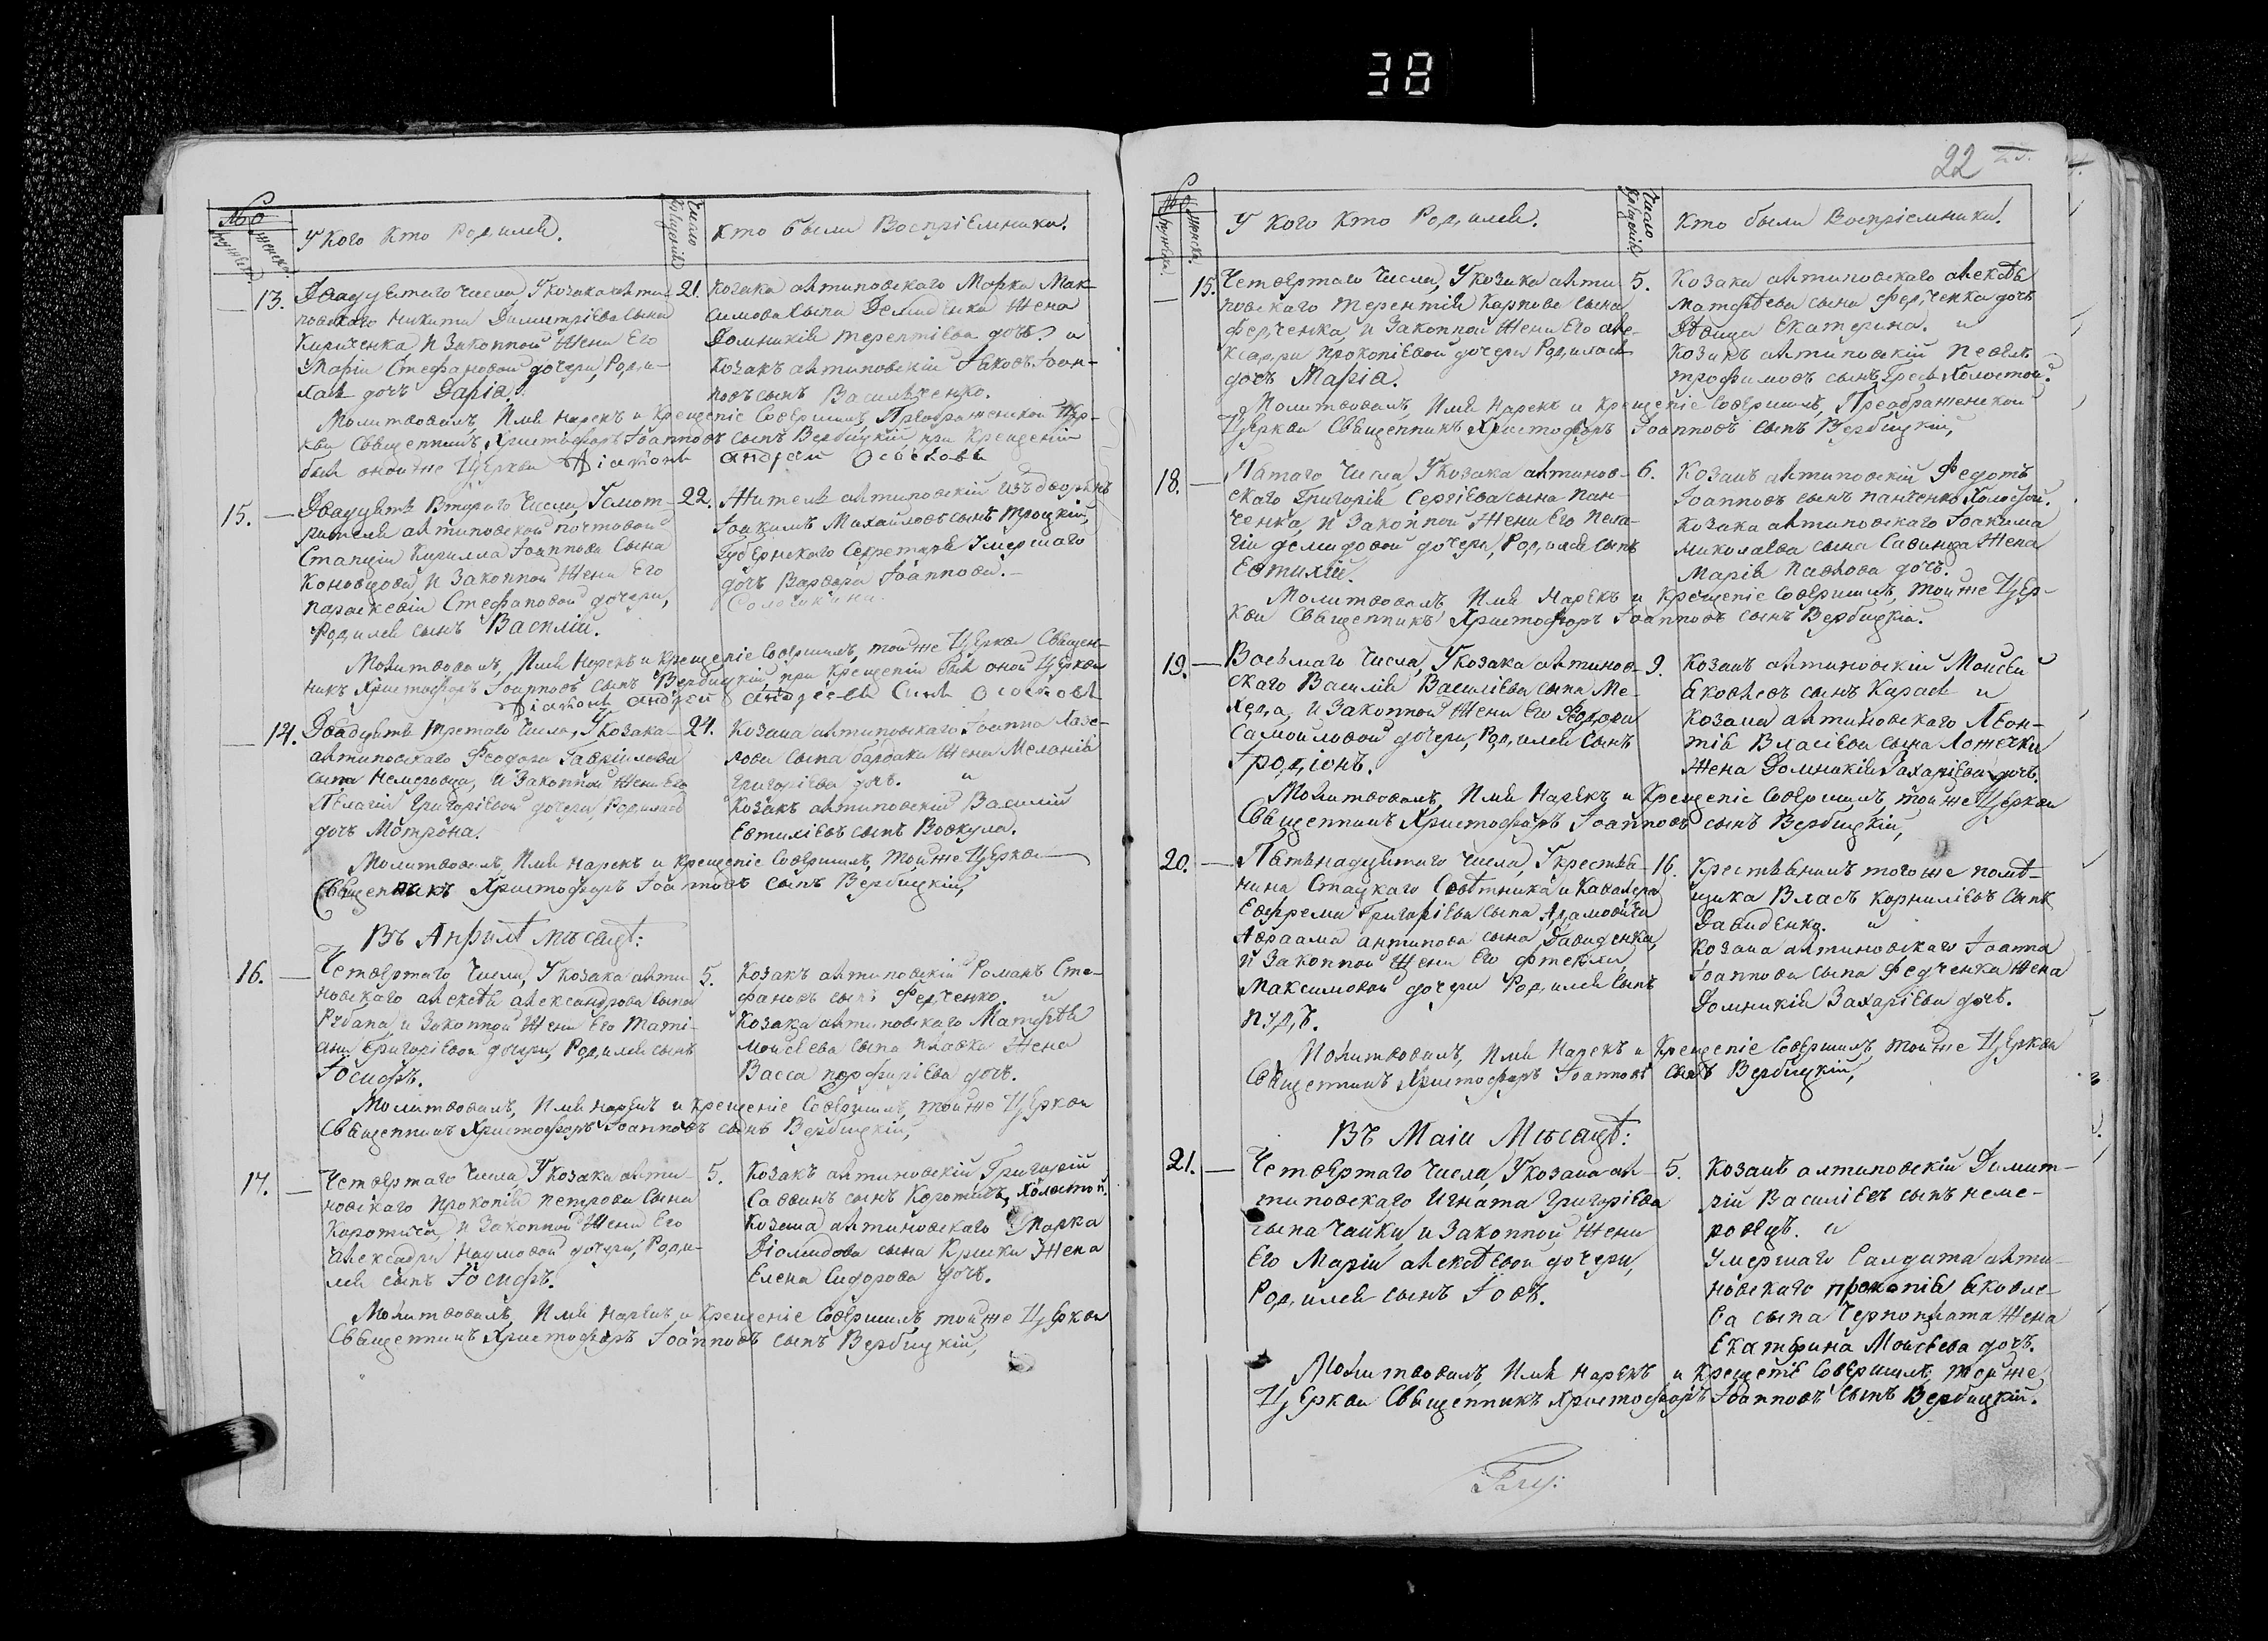 38
22
№
мужеска
женска
У кого кто родился.
Число Крещенія
Кто были Воспріемники.
13. Двадцятаго числа, У козака анти-
повскаго Никиты Димитріева сына
Кириченка, и Законной Жены Его
Маріи Стефановой дочери, Роди-
лась дочь Дарія.
21. Козака антиповскаго Марка Мак-
симова сына Демиденка Жена
Домникія Терентіева дочь. и
Козакъ антиповскій Іаковъ Іоан-
новъ сынъ Василченко.
Молитвовалъ, Имя нарекъ и Крещеніе Совершилъ, Преображенской Цер-
кви Священникъ Христофоръ Іоанновъ сынъ Вербицкій при Крещеніи
былъ оной же Церкви Діаконъ Андрей
15. Двадцять Втораго Числа, У смот-
рителя антиповской почтовой
Станціи Кирилла Іоаннова Сына
Коновцова, и Законной Жены Его
Параскевіи Стефановой дочери,
Родился сынъ Василій.
22. Житель антиповскій изъ дворянъ
Іоакимъ Михайловъ сынъ Троцкій,
Губернскаго Секретаря Умершаго
дочь Варвара Іоаннова.
Молитвовалъ, Имя Нарекъ и Крещеніе Совершилъ, той же Церкви Священ-
никъ Христофоръ Іоанновъ сынъ Вербицкій, при Крещеніи былъ оной Церкви
Діаконъ Андрей Андреевъ Сынъ
14. Двадцять Третаго Числа, У Козака
антиповскаго Феодора Гавріилова
сына Немеровца, и Законной Жены Его
Пелагіи Григоріевой дочери, Родилась
дочь Мотрона.
24. Козака антиповскаго Іоанна Лазе-
рова сына Бардака Жена Меланія
Григоріева дочь. и
Козакъ антиповскій Василій
Евтиміевъ сынъ Вовкула.
Молитвовалъ, Имя нарекъ и Крещеніе Совершилъ, Той же Церкви
Священникъ Христофоръ Іоанновъ сынъ Вербицкій,
Въ Априлѣ мѣсяцѣ:
16. Четвертаго Числа, У козака анти-
повскаго Алексѣя Александрова сына
Рубана, и Законной Жены Его Тати-
аны Григоріевой дочери, Родился сынъ
Іосифъ.
5. Козакъ антиповскій Романъ Сте-
фановъ сынъ Федченко. и
Козака антиповскаго Матфѣя
Моисеева сына Плавка Жена
Васса Порфиріева дочь.
Молитвовалъ, Имя нарекъ и Крещеніе Совершилъ, той же Церкви
Священникъ Христофоръ Іоанновъ сынъ Вербицкій,
17. Четвертаго Числа, У Козака анти-
повскаго Прокопія Петрова Сына
Коротича, и Законной Жены Его
Александры Наумовой дочери, Роди-
лся сынъ Іосифъ.
5. Козакъ антиповскій, Григорій
Саввинъ сынъ Коротичъ, Холостой.
Козака антиповскаго Марка
Діомидова сына Кришки Жена
Елена Сидорова дочь.
Молитвовалъ, Имя Нарекъ, и Крещеніе Совершилъ, той же Церкви
Священникъ Христофоръ Іоанновъ сынъ Вербицкій,
№
мужска.
женска.
У кого кто Родился.
Число Крещенія
Кто были Воспріемники.
15. Четвертаго Числа, У козака анти-
повскаго Терентія Карпова сына
Федченка, и Законной Жены Его Але-
ксандры Прокопіевой дочери Родилась
дочь Марія.
5. Козака антиповскаго Алексѣя
Матфѣева сына Федченка дочь
дѣвица Екатерина. и
Козакъ антиповскій Павелъ
Трофимовъ сынъ Гресь, Холостой.
Молитвовалъ, Имя Нарекъ и Крещеніе Совершилъ, Преображенской
Церкви Священникъ Христофоръ Іоанновъ сынъ Вербицкій,
18. Пятаго Числа, У козака антипов-
скаго Григорія Сергіева сына Пан-
ченка, и Законной Жены Его Пела-
гіи Демидовой дочери, Родился сынъ
Евтихій.
6. Козакъ антиповскій Федотъ
Іоанновъ сынъ Панченко, Холостой.
Козака антиповскаго Іоакима
Миколаева сына Савинца Жена
Марія Павлова дочь.
Молитвовалъ, Имя Нарекъ и Крещеніе Совершилъ, той же Цер-
кви Священникъ Христофоръ Іоанновъ сынъ Вербицкій.
19. Восьмаго Числа, У козака антипов-
скаго Василія Василіева сына Ме-
хеда, и Законной Жены Его Федоры
Самойловой дочери, Родился Сынъ
Іродіонъ.
9. Козакъ антиповскій Моисей
Яковлевъ сынъ Карась и
Козака антиповскаго Леон-
тія Власіева сына Ложечки
Жена Домникія Захаріева дочь.
Молитвовалъ, Имя Нарекъ и Крещеніе Совершилъ, той же Церкви
Священникъ Христофоръ Іоанновъ сынъ Вербицкій,
20. Пятьнадцятаго Числа, У крестья-
нина Стацкаго Совѣтника и Кавалера
Ефрема Григоріева сына Адамовича
Авраама Антипова сына Давиденка,
и Законной Жены Его Фтеклы
Максимовой дочери Родился сынъ
Пудъ.
16. Крестьянинъ того же помѣ-
щика Власъ Корниліевъ Сынъ
Давиденко. и
Козака антиповскаго Іоанна
Іоаннова сына Федченка Жена
Домникія Захаріева дочь.
Молитвовалъ, Имя Нарекъ и Крещеніе Совершилъ, той же Церкви
Священникъ Христофоръ Іоанновъ сынъ Вербицкій,
Въ Маіи Мѣсяцѣ:
21. Четвертаго Числа, У козака ан-
типовскаго Игната Григоріева
сына Чайки, и Законной Жены
Его Маріи Алексѣевой дочери,
Родился сынъ Іовъ.
5. Козакъ антиповскій Димит-
рій Василіевъ сынъ Неме-
ровецъ. и
Умершаго Салдата анти-
повскаго Прокопія Яковле-
ва сына Жена
Екатерина Моисеева дочь.
Молитвовалъ, Имя Нарекъ и Крещеніе Совершилъ, той же
Церкви Священникъ Христофоръ Іоанновъ сынъ Вербицкій.